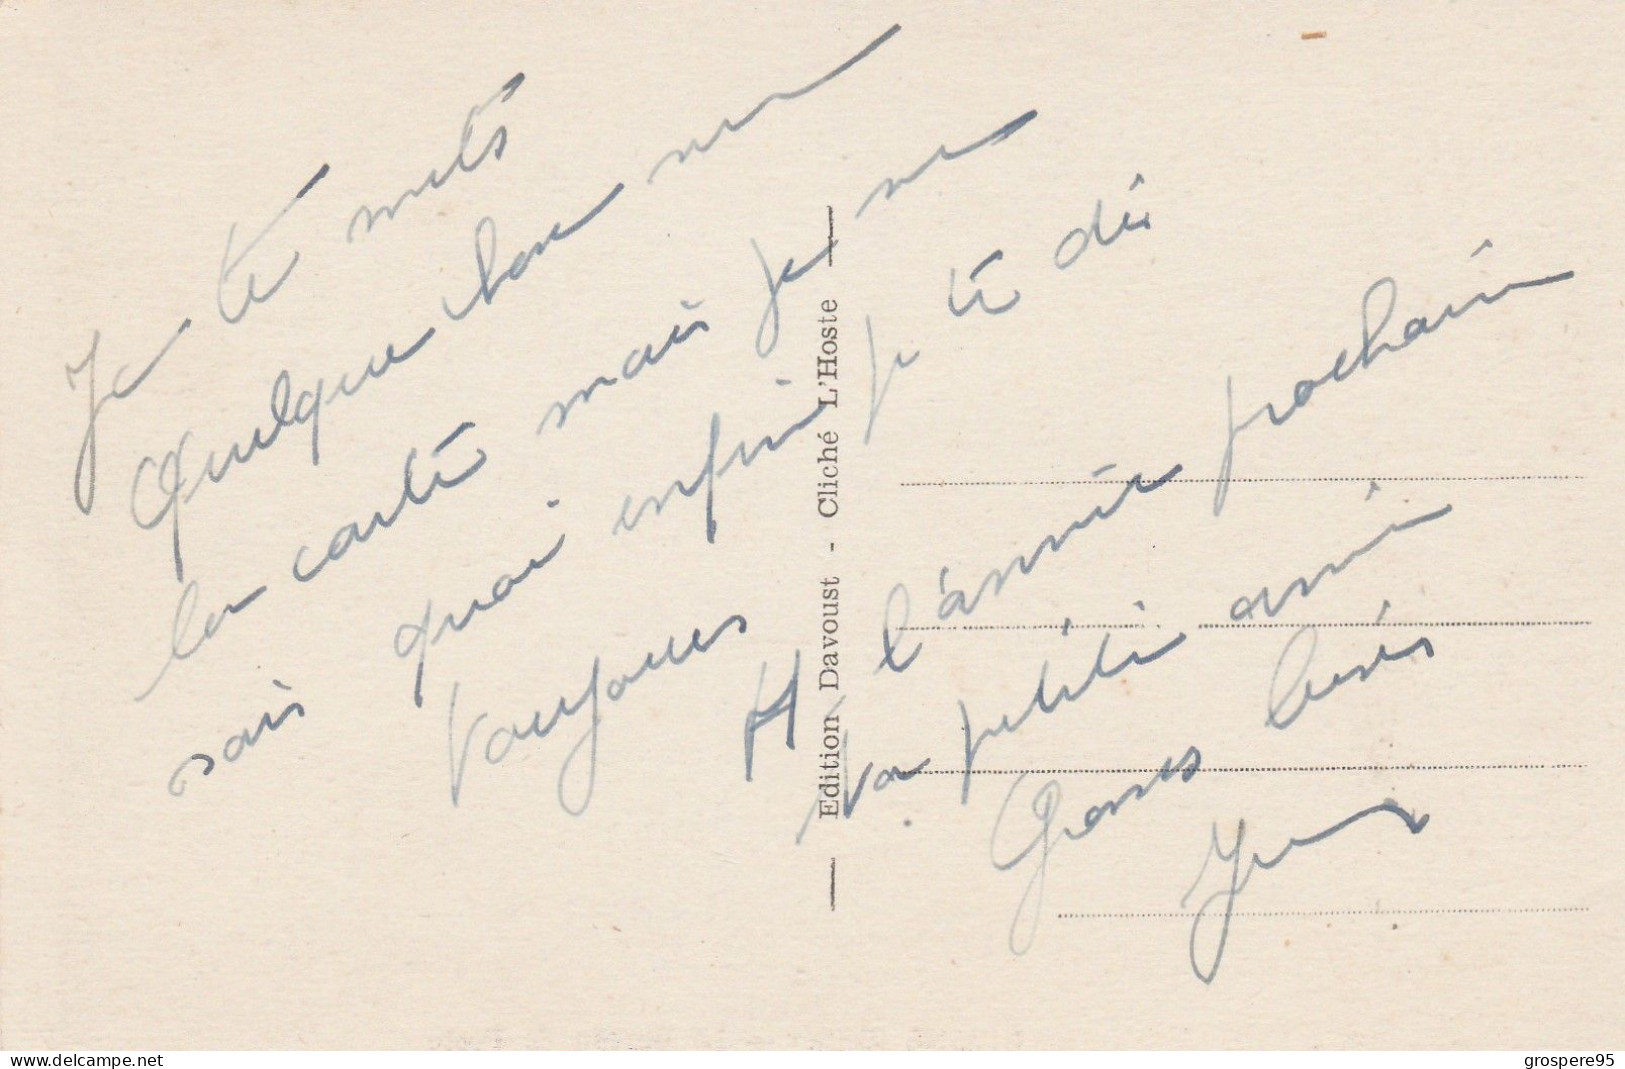 Je te mets
Quelque chose sur
la carte mais je ne
sais quoi enfin je te dis
toujours A l'année prochaine
ta petite amie
Grosses bises
Edition Davoust - Cliché L'Hoste
www.delcampe.net
grospere95